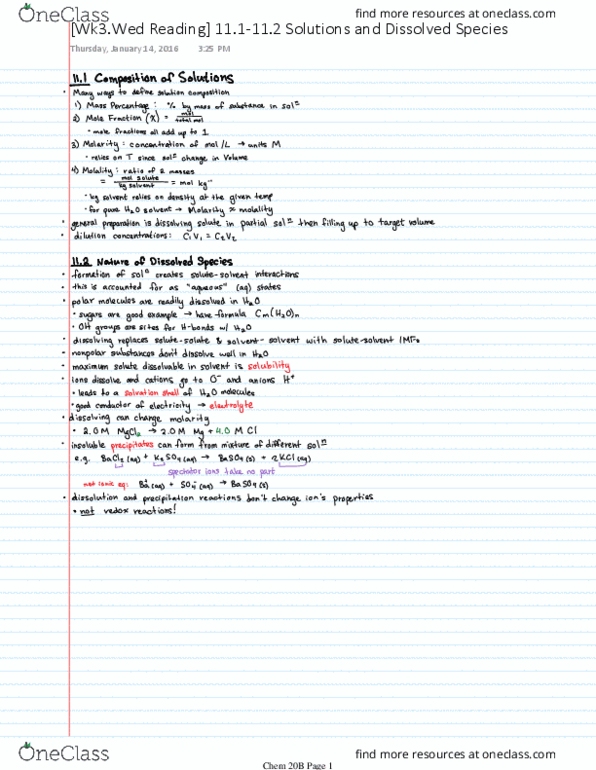 OneClass find more resources at oneclass.com
[Wk3.Wed Reading] 11.1-11.2 Solutions and Dissolved Species
Thursday, January 14, 2016 3:25 PM
11.1 Composition of Solutions
• Many ways to define solution composition
1) Mass Percentage : % by mass of substance in solⁿ
2) Mole Fraction (X) = mol / total mol
• mole fractions all add up to 1
3) Molarity : concentration of mol/L → units M
• relies on T since solⁿ change in Volume
4) Molality : ratio of 2 masses
= mol solute / kg solvent = mol kg⁻
• kg solvent relies on density at the given temp
• for pure H₂O solvent → Molarity ≈ molality
• general preparation is dissolving solute in partial solⁿ then filling up to target volume
• dilution concentrations: C₁V₁ = C₂V₂
11.2 Nature of Dissolved Species
• formation of solⁿ creates solute-solvent interactions
• this is accounted for as "aqueous" (aq) states
• polar molecules are readily dissolved in H₂O
• sugars are good example → have formula Cm(H₂O)n
• OH groups are sites for H-bonds w/ H₂O
• dissolving replaces solute-solute & solvent-solvent with solute-solvent IMFs
• nonpolar substances don't dissolve well in H₂O
• maximum solute dissolvable in solvent is solubility
• Ions dissolve and cations go to O⁻ and anions H⁺
• leads to a solvation shell of H₂O molecules
• good conductor of electricity → electrolyte
• dissolving can change molarity
• 2.0 M MgCl₂ → 2.0 M Mg + 4.0 M Cl
• insoluble precipitates can form from mixture of different solⁿ
e.g. BaCl₂ (aq) + K₂SO₄ (aq) → BaSO₄ (s) + 2KCl (aq)
spectator ions take no part
net ionic eq: Ba (aq) + SO₄ (aq) → BaSO₄ (s)
• dissolution and precipitation reactions don't change ion's properties
• not redox reactions!
OneClass find more resources at oneclass.com
Chem 20B Page 1